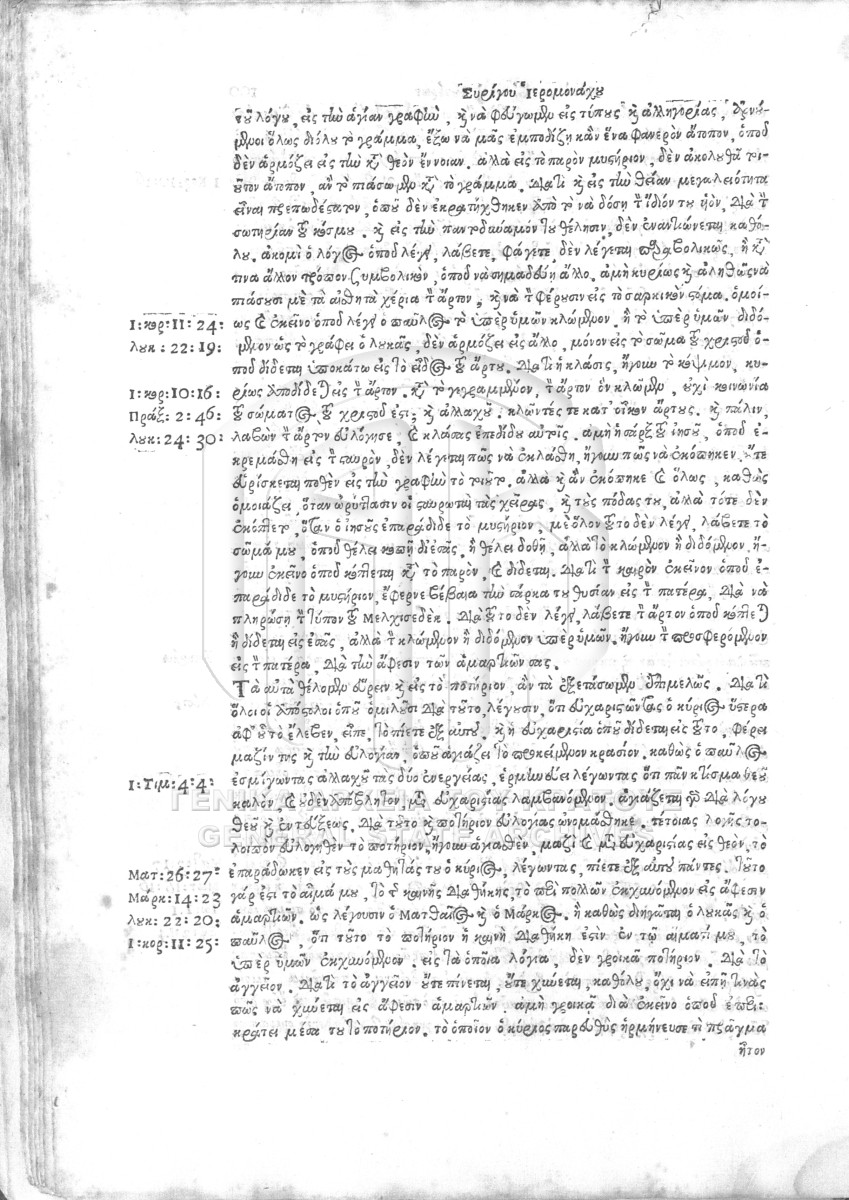 Συρίγου Ἱερομονάχου
τοῦ λόγου, εἰς τὴν ἁγίαν γραφὴν, καὶ νὰ φεύγωμεν εἰς τύπους καὶ ἀλληγορίας,
μενοι ὅλως διόλου τὸ γράμμα, ἔξω νὰ μᾶς ἐμποδίζῃ κᾂν ἕνα φανερὸν ἄτοπον, ὁποῦ
δὲν ἁρμόζει εἰς τὴν κατὰ θεὸν ἔννοιαν. ἀλλὰ εἰς τὸ παρὸν μυστήριον, δὲν ἀκολουθᾷ τοι-
οῦτον ἄτοπον, ἂν τὸ πιάσωμεν κατὰ τὸ γράμμα. Διατὶ καὶ εἰς τὴν θείαν μεγαλειότητα
εἶναι πρεπωδέστατον, ὁποῦ δὲν ἐκρατήχθηκεν ἀπὸ τὸ νὰ δόσῃ τὸν ἴδιόν του υἱὸν, διὰ τὴν
σωτηρίαν τοῦ κόσμου. καὶ εἰς τὴν παντοδύναμόν του θέλησιν, δὲν ἐναντιώνεται καθό-
λου. ἀκομὶ ὁ λόγος ὁποῦ λέγει, λάβετε, φάγετε, δὲν λέγεται παραβολικῶς, ἢ κατά
τινα ἄλλον τρόπον συμβολικὸν, ὁποῦ νὰ σημαδεύῃ ἄλλο. ἀμὴ κυρίως καὶ ἀληθῶς νὰ
πιάσουσι μὲ τὰ αἰσθητὰ χέρια τὸν ἄρτον, καὶ νὰ τὸν φέρουσιν εἰς τὸ σαρκικὸν στόμα. ὁμοί-
Ι:κορ:11:24: ως καὶ ἐκεῖνο ὁποῦ λέγει ὁ παῦλος τὸ ὑπὲρ ὑμῶν κλώμενον. ἢ τὸ ὑπὲρ ὑμῶν διδό-
λυκ:22:19: μενον ὡς τὸ γράφει ὁ λουκᾶς, δὲν ἁρμόζει εἰς ἄλλο, μόνον εἰς τὸ σῶμα τοῦ χριστοῦ ὁ-
ποῦ δίδεται ὑποκάτω εἰς τὸ εἶδος τοῦ ἄρτου. Διατὶ ἡ κλάσις, ἤγουν τὸ κόψιμον, κυ-
Ι:κορ:10:16: ρίως ἀποδίδεται εἰς τὸν ἄρτον. κατὰ τὸ γεγραμμένον, τὸν ἄρτον ὃν κλῶμεν, οὐχὶ κοινωνία
Πράξ:2:46: τοῦ σώματος τοῦ χριστοῦ ἐστι; καὶ ἀλλαχοῦ. κλῶντές τε κατ' οἶκον ἄρτους. καὶ πάλιν,
λυκ:24:30: λαβὼν τὸν ἄρτον εὐλόγησε, καὶ κλάσας ἐπεδίδου αὐτοῖς. ἀμὴ ἡ σὰρξ τοῦ ἰησοῦ, ὁποῦ ἐ-
κρεμάσθη εἰς τὸν σταυρὸν, δὲν λέγεται πῶς νὰ ἐκλάσθη, ἤγουν πῶς νὰ ἐκόπηκεν. οὔτε
εὑρίσκεται ποθὲν εἰς τὴν γραφὴν τὸ τοιοῦτο. ἀλλὰ καὶ ἂν ἐκόπηκε καὶ ὅλως, καθὼς
ὁμοιάζει, ὅταν ὠρύττασιν οἱ σταυρωταὶ τὰς χεῖρας, καὶ τοὺς πόδας του, ἀλλὰ τότε δὲν
ἐκόπτετο, ὅταν ὁ ἰησοῦς ἐπαράδιδε τὸ μυστήριον. μὲ ὅλον τοῦτο δὲν λέγει, λάβετε τὸ
σῶμά μου, ὁποῦ θέλει κοπῆ δι' ἐσᾶς, ἢ θέλει δοθῆ, ἀλλὰ τὸ κλώμενον ἢ διδόμενον, ἤ-
γουν ἐκεῖνο ὁποῦ κόπτεται κατὰ τὸ παρὸν, καὶ δίδεται. Διατὶ τὸν καιρὸν ἐκεῖνον ὁποῦ ἐ-
παράδιδε τὸ μυστήριον, ἔφερνε βέβαια τὴν σάρκα του θυσίαν εἰς τὸν πατέρα, διὰ νὰ
πληρώσῃ τὸν τύπον τοῦ Μελχισεδέκ. Διὰ τοῦτο δὲν λέγει, λάβετε τὸν ἄρτον ὁποῦ κόπτεται
ἢ δίδεται εἰς ἐσᾶς, ἀλλὰ τὸν κλώμενον ἢ διδόμενον ὑπὲρ ὑμῶν. ἤγουν τὸν προσφερόμενον
εἰς τὸν πατέρα, διὰ τὴν ἄφεσιν τῶν ἁμαρτιῶν σας.
Τὰ αὐτὰ θέλομεν εὕρειν καὶ εἰς τὸ ποτήριον, ἂν τὰ ἐξετάσωμεν ἐπιμελῶς. Διατὶ
ὅλοι οἱ ἀπόστολοι ὁποῦ ὁμιλοῦσι διὰ τοῦτο, λέγουσιν, ὅτι εὐχαριστῶντας ὁ κύριος ὕστερα
ἀφ' οὗ τὸ ἔλαβεν, εἶπε, τὸ πίετε ἐξ αὐτοῦ. καὶ ἡ εὐχαριστία ὁποῦ δίδεται εἰς τοῦτο, φέρει
μαζίν της καὶ τὴν εὐλογίαν, ὁποῦ ἁγιάζει τὸ προκείμενον κρασίον. καθὼς ὁ παῦλος
Ι:Τιμ:4:4: ἐσμίγωντας ἀλλαχοῦ τὰς δύο ἐνεργείας, ἑρμηνεύει λέγωντας ὅτι πᾶν κτίσμα θεοῦ
καλὸν, καὶ οὐδὲν ἀπόβλητον, μετὰ εὐχαριστίας λαμβανόμενον. ἁγιάζεται γὰρ διὰ λόγου
θεοῦ καὶ ἐντεύξεως. Διὰ τοῦτο καὶ ποτήριον εὐλογίας ὠνομάσθηκε. τέτοιας λογῆς το-
λοιπὸν εὐλογηθὲν τὸ ποτήριον, ἤγουν ἁγιασθὲν, μαζὶ καὶ μετὰ εὐχαριστίας εἰς θεὸν, τὸ
Ματ:26:27: ἐπαράδωκεν εἰς τοὺς μαθητάς του ὁ κύριος, λέγωντας, πίετε ἐξ αὐτοῦ πάντες. τοῦτο
Μάρκ:14:23 γάρ ἐστι τὸ αἷμά μου, τὸ τῆς καινῆς διαθήκης, τὸ περὶ πολλῶν ἐκχυνόμενον εἰς ἄφεσιν
λυκ:22:20: ἁμαρτιῶν. ὡς λέγουσιν ὁ Ματθαῖος καὶ ὁ Μάρκος. ἢ καθὼς διηγᾶται ὁ λουκᾶς καὶ ὁ
Ι:κορ:11:25: παῦλος, ὅτι τοῦτο τὸ ποτήριον ἡ καινὴ διαθήκη ἐστὶν ἐν τῷ αἵματί μου, τὸ
ὑπὲρ ὑμῶν ἐκχυνόμενον. εἰς τὰ ὁποῖα λόγια, δὲν γροικᾶ ποτήριον. διὰ τὸ
ἀγγεῖον. Διατὶ τὸ ἀγγεῖον οὔτε πίνεται, οὔτε χύνεται, καθόλου, ὄχι νὰ εἰπῇ τινὰς
πῶς νὰ χύνεται εἰς ἄφεσιν ἁμαρτιῶν. ἀμὴ γροικᾶ διὰ ἐκεῖνο ὁποῦ ἐπερι-
κράτει μέσα του τὸ ποτήριον. τὸ ὁποῖον ὁ κύριος παρευθὺς ἡρμήνευσε τί πρᾶγμα
ἦτον